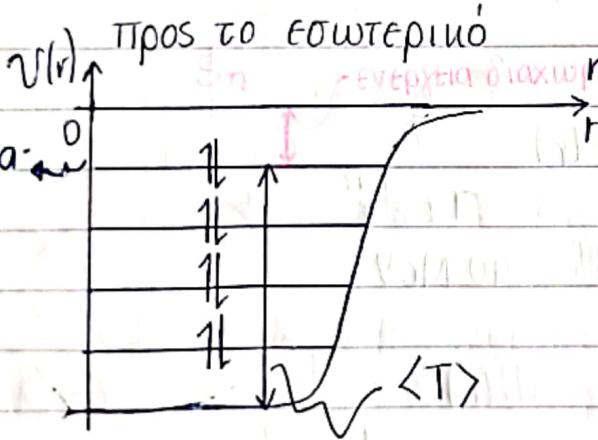 προς το εσωτερικό
V(r)
Sn
ενέργεια διαχωρ
r
0
r
a
<T>